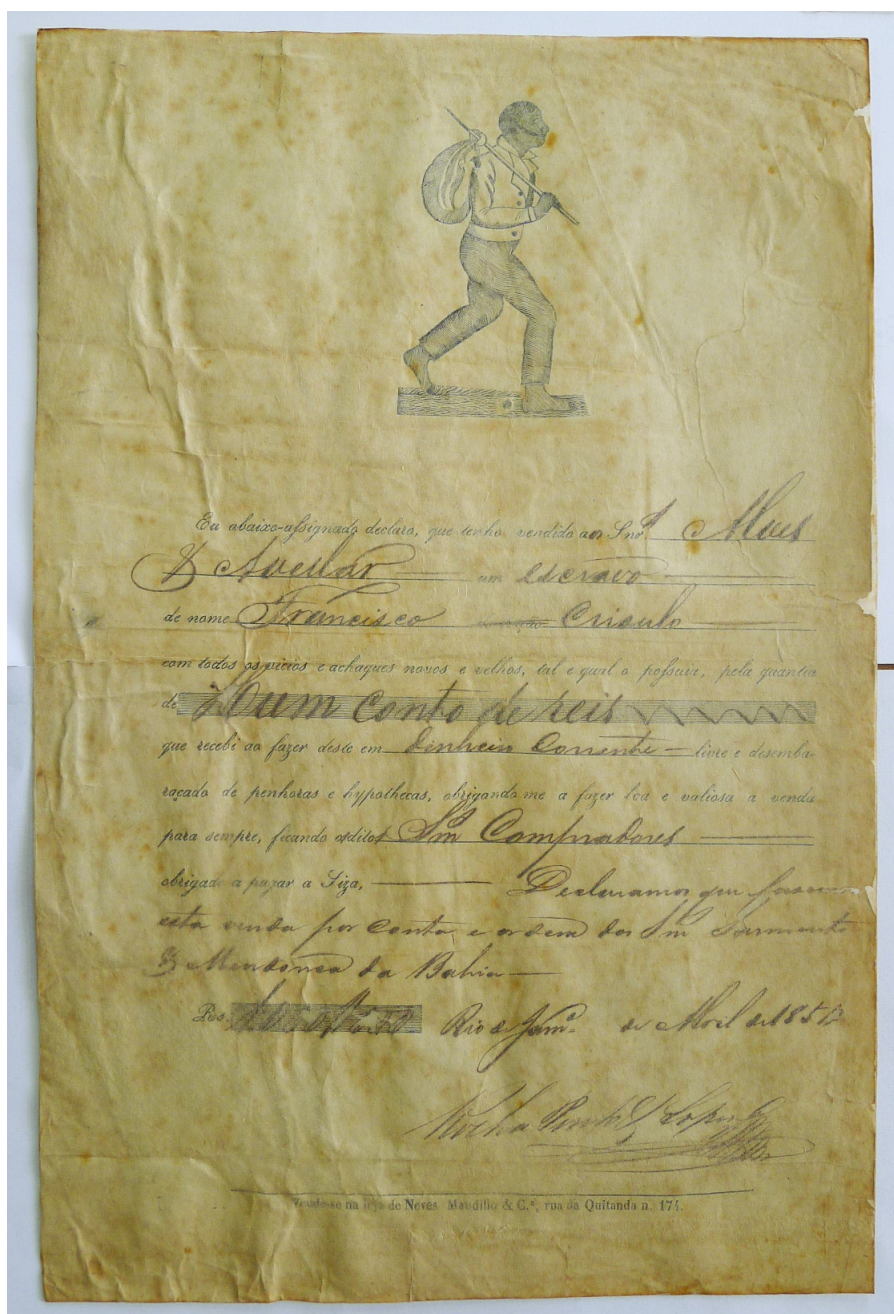 Eu abaixo-assignado declaro, que tenho vendido aos Snr.s Alves
& Avellar um escravo
de nome Francisco Crioulo
com todos os vicios e achaques novos e velhos, tal e qual o possuia, pela quantia
de Hum conto de reis
que recebi ao fazer deste em dinheiro Corrente livre e desemba-
raçado de penhoras e hypothecas, obrigando-me a fazer boa e valiosa a venda
para sempre, ficando os ditos Snrs Compradores
obrigado a pagar a Siza, Declaramos que fasemos
esta venda por conta e ordem dos Snrs Sarmento
& Mendonca da Bahia
Rs. Rio de Janro. de Abril de 185
Rocha Pinto & Lopes
Vende-se na loja de Neves Maudillo & C.ª, rua da Quitanda n. 174.